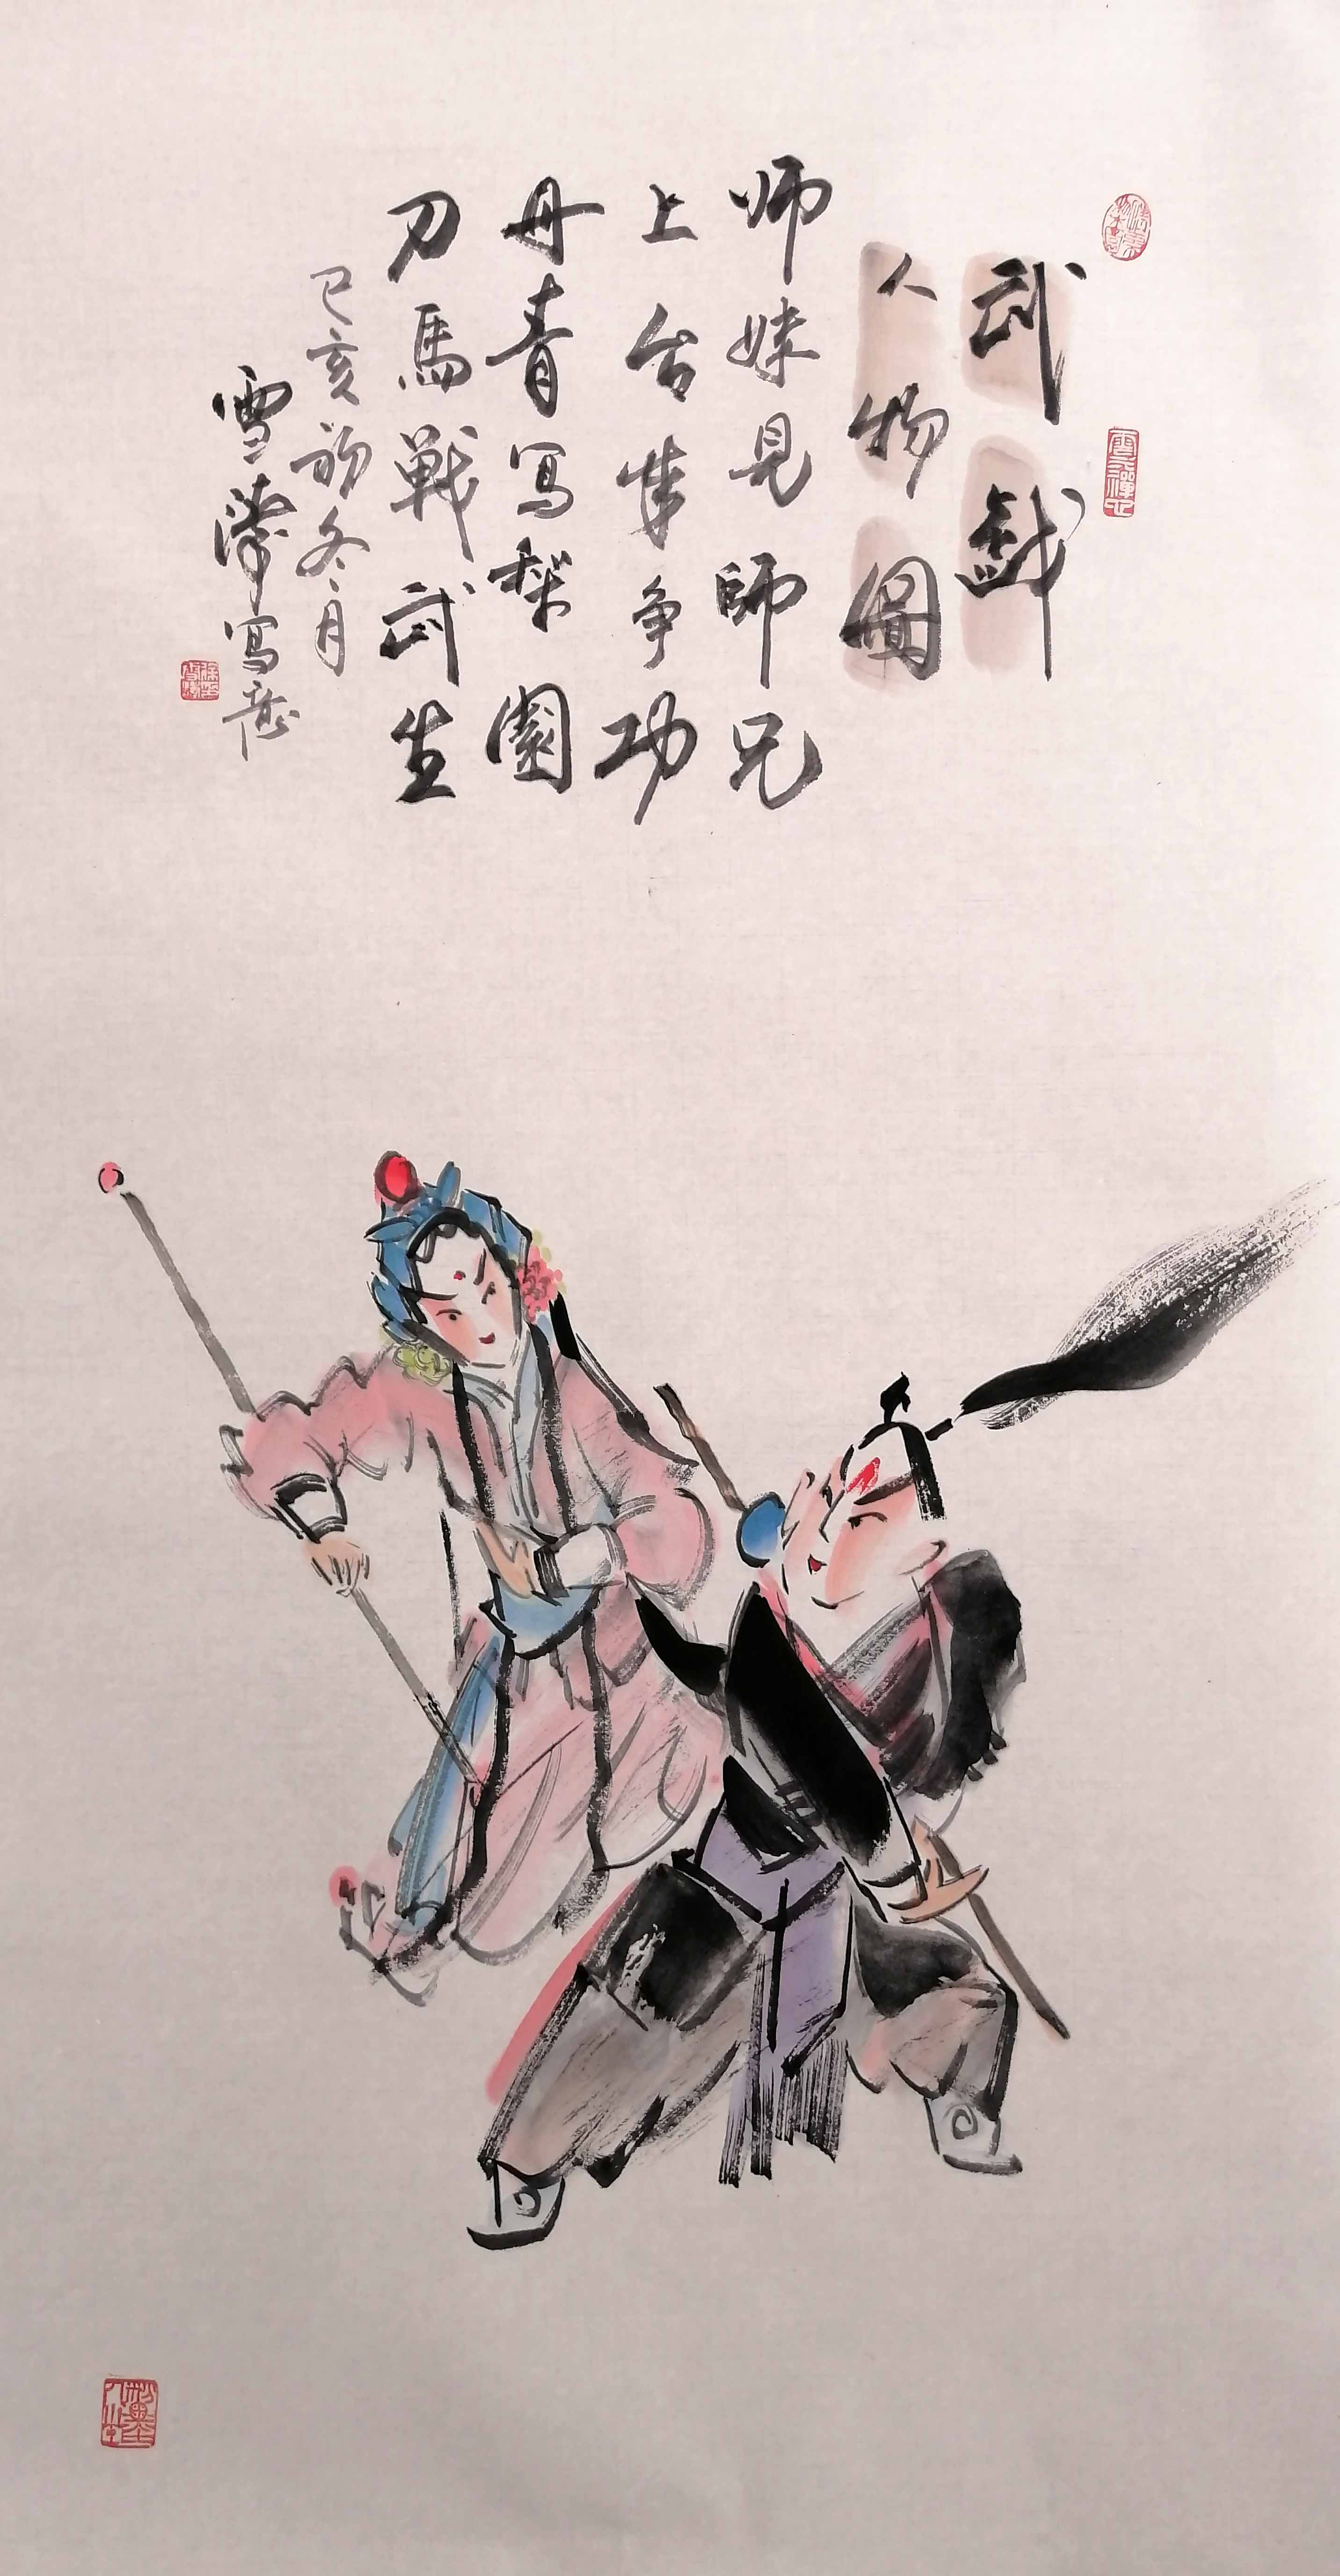 武戲
人物圖
师妹見師兄
上台集争功
丹青寫梨園
刀馬戰武生
己亥初冬月
雪濤寫意